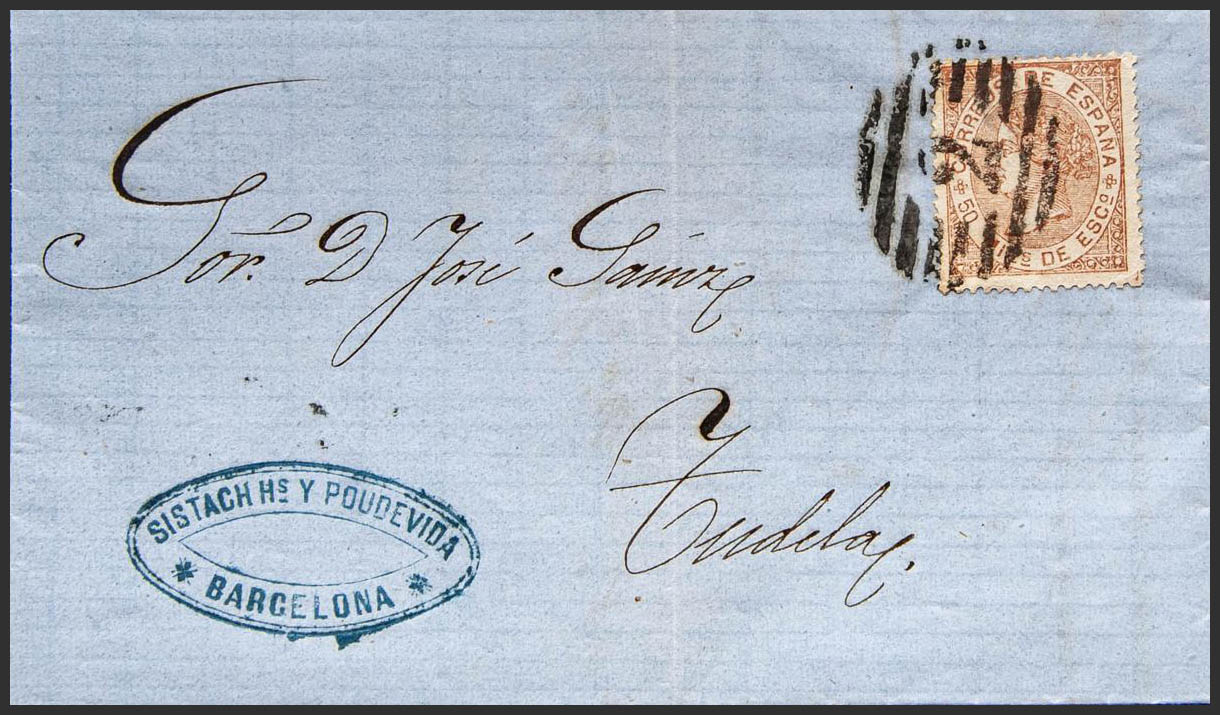 Sor. D José Sainz
Tudela.
CORREOS DE ESPAÑA
50 Mˢ DE ESCº
2
SISTACH Hˢ Y POUDEVIDA
BARCELONA